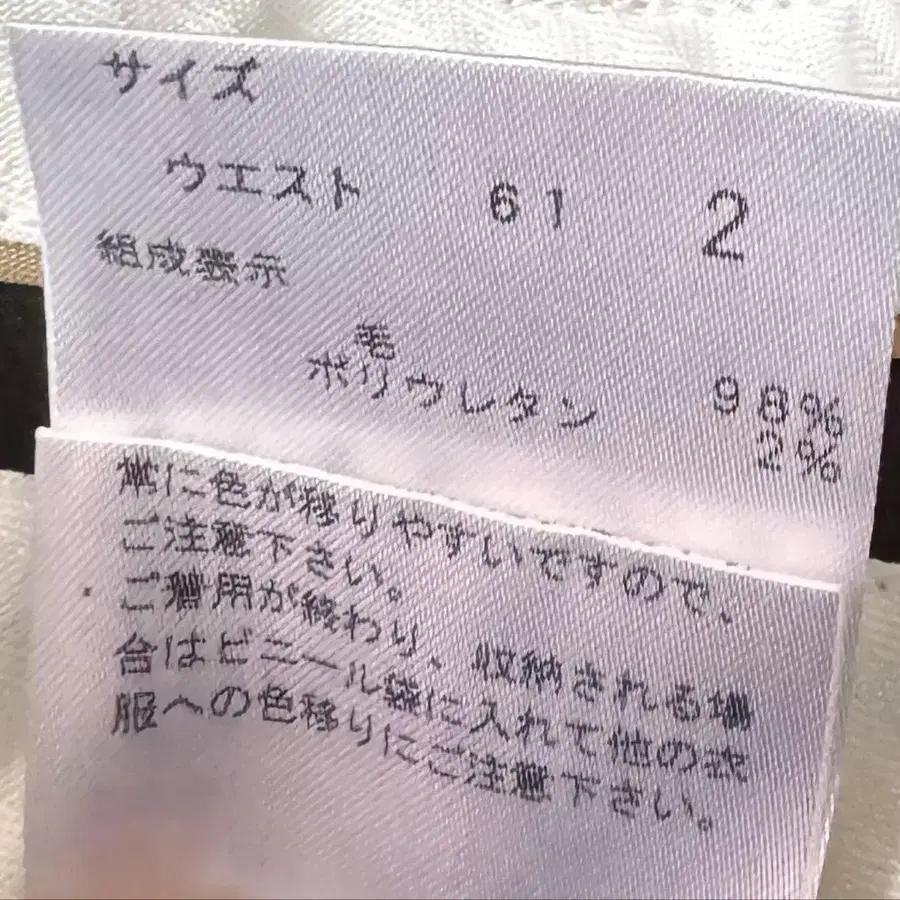 サイズ
ウエスト 61 2
組成表示
綿 98%
ポリウレタン 2%
常に色が移りやすいですので、
ご注意下さい。
・ご着用が終わり、収納される場
合はビニール袋に入れて他の衣
服への色移りにご注意下さい。